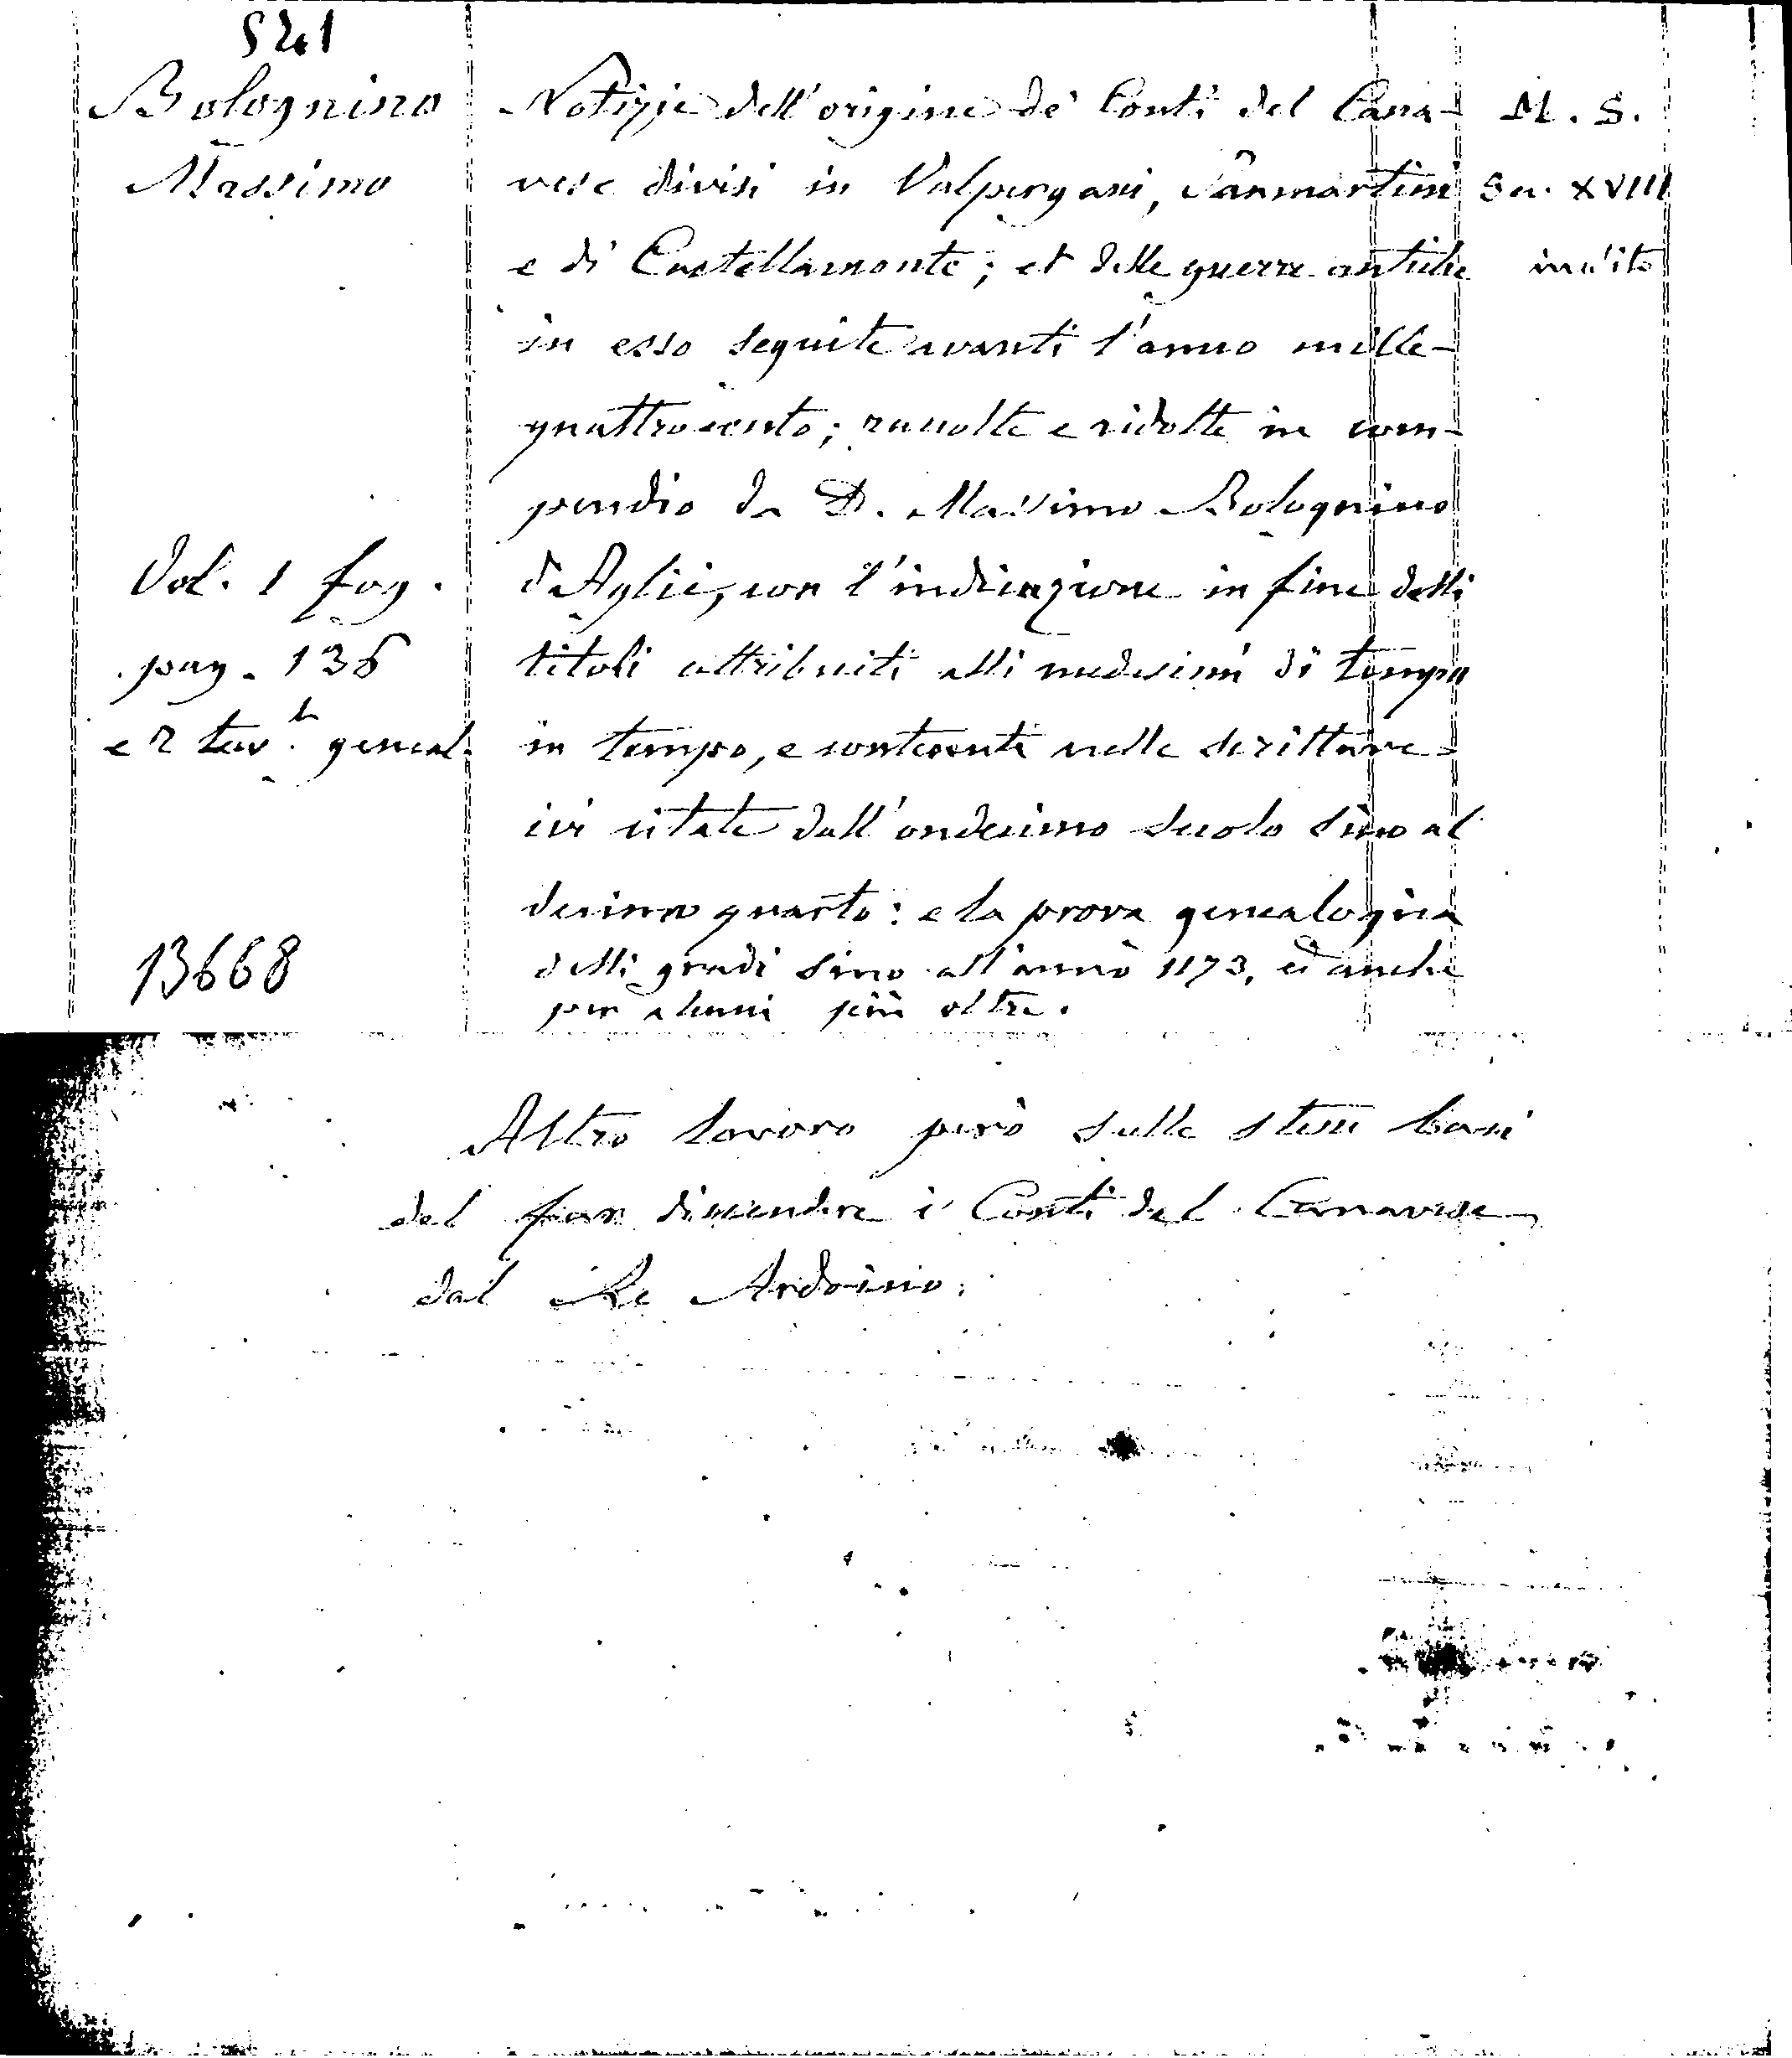 521
Bolognino
Massimo
Vol. 1 fog.
pag. 136
e 2 tav.le geneal.
13668
Notizie dell'origine de' Conti del Cana-
vese divisi in Valpergani, Sanmartini
e di Castellamonte; et delle guerre antiche
in esso seguite avanti l'anno mille-
quattrocento; raccolte e ridotte in com-
pendio da D. Massimo Bolognino
d'Agliè, con l'indicazione in fine delli
titoli attribuiti alli medesimi di tempo
in tempo, e contenuti nelle scritture
ivi citate dall'ondecimo secolo sino al
decimo quarto: e la prova genealogica
delli gradi sino all'anno 1173, ed anche
per alcuni più oltre.
M. S.
Sec. XVIII
inedito
Altro lavoro però sulle stesse basi
del far discendere i Conti del Canavese
dal Re Ardoino.